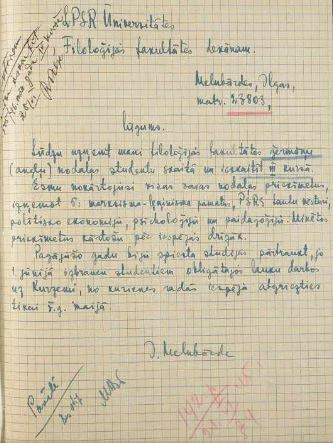 LPSR Universitātes
Filoloģijas fakultātes dekānam.
Melnbārdes, Ilgas,
matr. 23803,
lūgums.
Lūdzu uzņemt mani filoloģijas fakultātes ģermāņu
(angļu) nodaļas studentu skaitā un ieskaitīt III kursā.
Esmu nokārtojusi visus šajās nodaļas priekšmetus,
izņemot 5: marksisma-ļeņinisma pamatus, PSRS tautu vēsturi,
politisko ekonomiju, psicholoģiju un pedagoģiju. Minētos
priekšmetus kārtošu pēc iespējas drīzāk.
Pagājušo gadu biju spiesta studijas pārtraukt, jo
1. jūnijā izbraucu studentiem obligātajos lauku darbos
uz Kurzemi, no kurienes radās iespēja atgriezties
tikai š.g. maijā.
I. Melnbārde